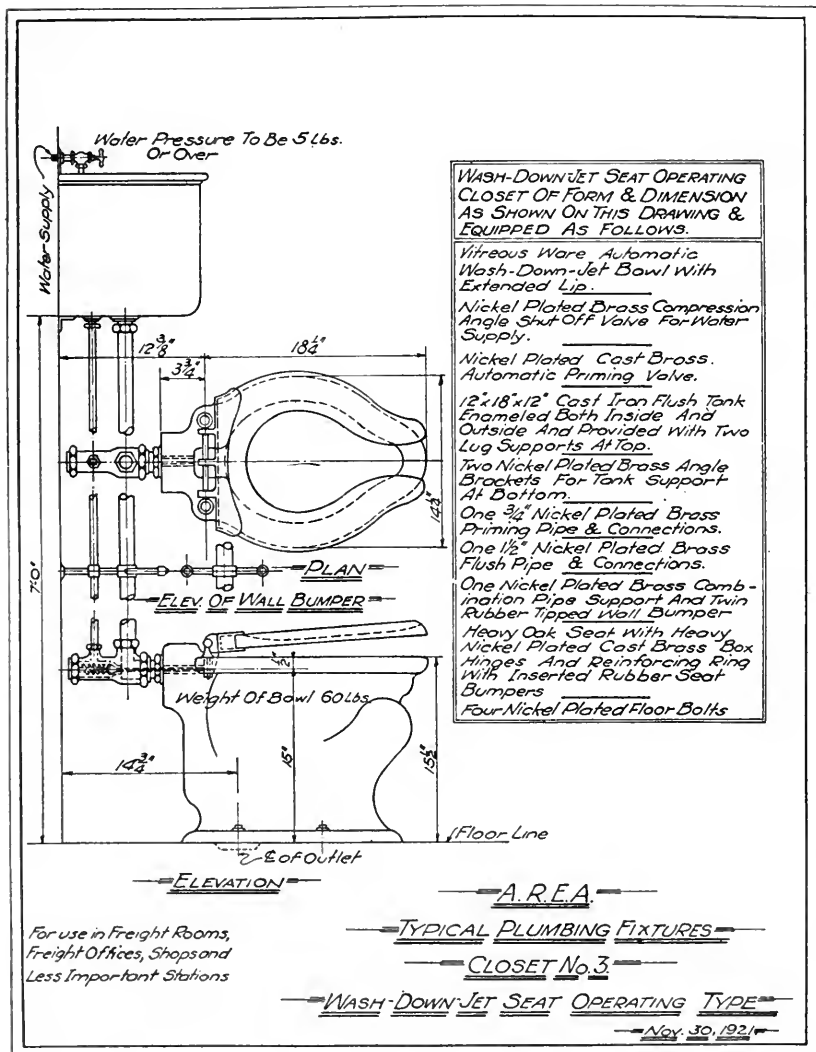 Water Pressure To Be 5 Lbs.
Or Over
Water Supply
WASH-DOWN-JET SEAT OPERATING
CLOSET OF FORM & DIMENSION
AS SHOWN ON THIS DRAWING &
EQUIPPED AS FOLLOWS.
Vitreous Ware Automatic
Wash-Down-Jet Bowl With
Extended Lip.
Nickel Plated Brass Compression
Angle Shut Off Valve For Water
Supply.
Nickel Plated Cast Brass.
Automatic Priming Valve.
12"x18"x12" Cast Iron Flush Tank
Enameled Both Inside And
Outside And Provided With Two
Lug Supports At Top.
Two Nickel Plated Brass Angle
Brackets For Tank Support
At Bottom.
One 3/4" Nickel Plated Brass
Priming Pipe & Connections.
One 1½" Nickel Plated Brass
Flush Pipe & Connections.
One Nickel Plated Brass Comb-
ination Pipe Support And Twin
Rubber Tipped Wall Bumper
Heavy Oak Seat With Heavy
Nickel Plated Cast Brass Box
Hinges And Reinforcing Ring
With Inserted Rubber Seat
Bumpers
Four Nickel Plated Floor Bolts
12 3/8"
18 1/4"
3 3/4"
14 1/4"
7'0"
PLAN
ELEV. OF WALL BUMPER
1/2"
Weight Of Bowl 60 Lbs.
14 3/4"
15"
15 1/2"
Floor Line
℄ of Outlet
ELEVATION
For use in Freight Rooms,
Freight Offices, Shops and
Less Important Stations
A.R.E.A.
TYPICAL PLUMBING FIXTURES
CLOSET No. 3.
WASH-DOWN-JET SEAT OPERATING TYPE
Nov. 30, 1921